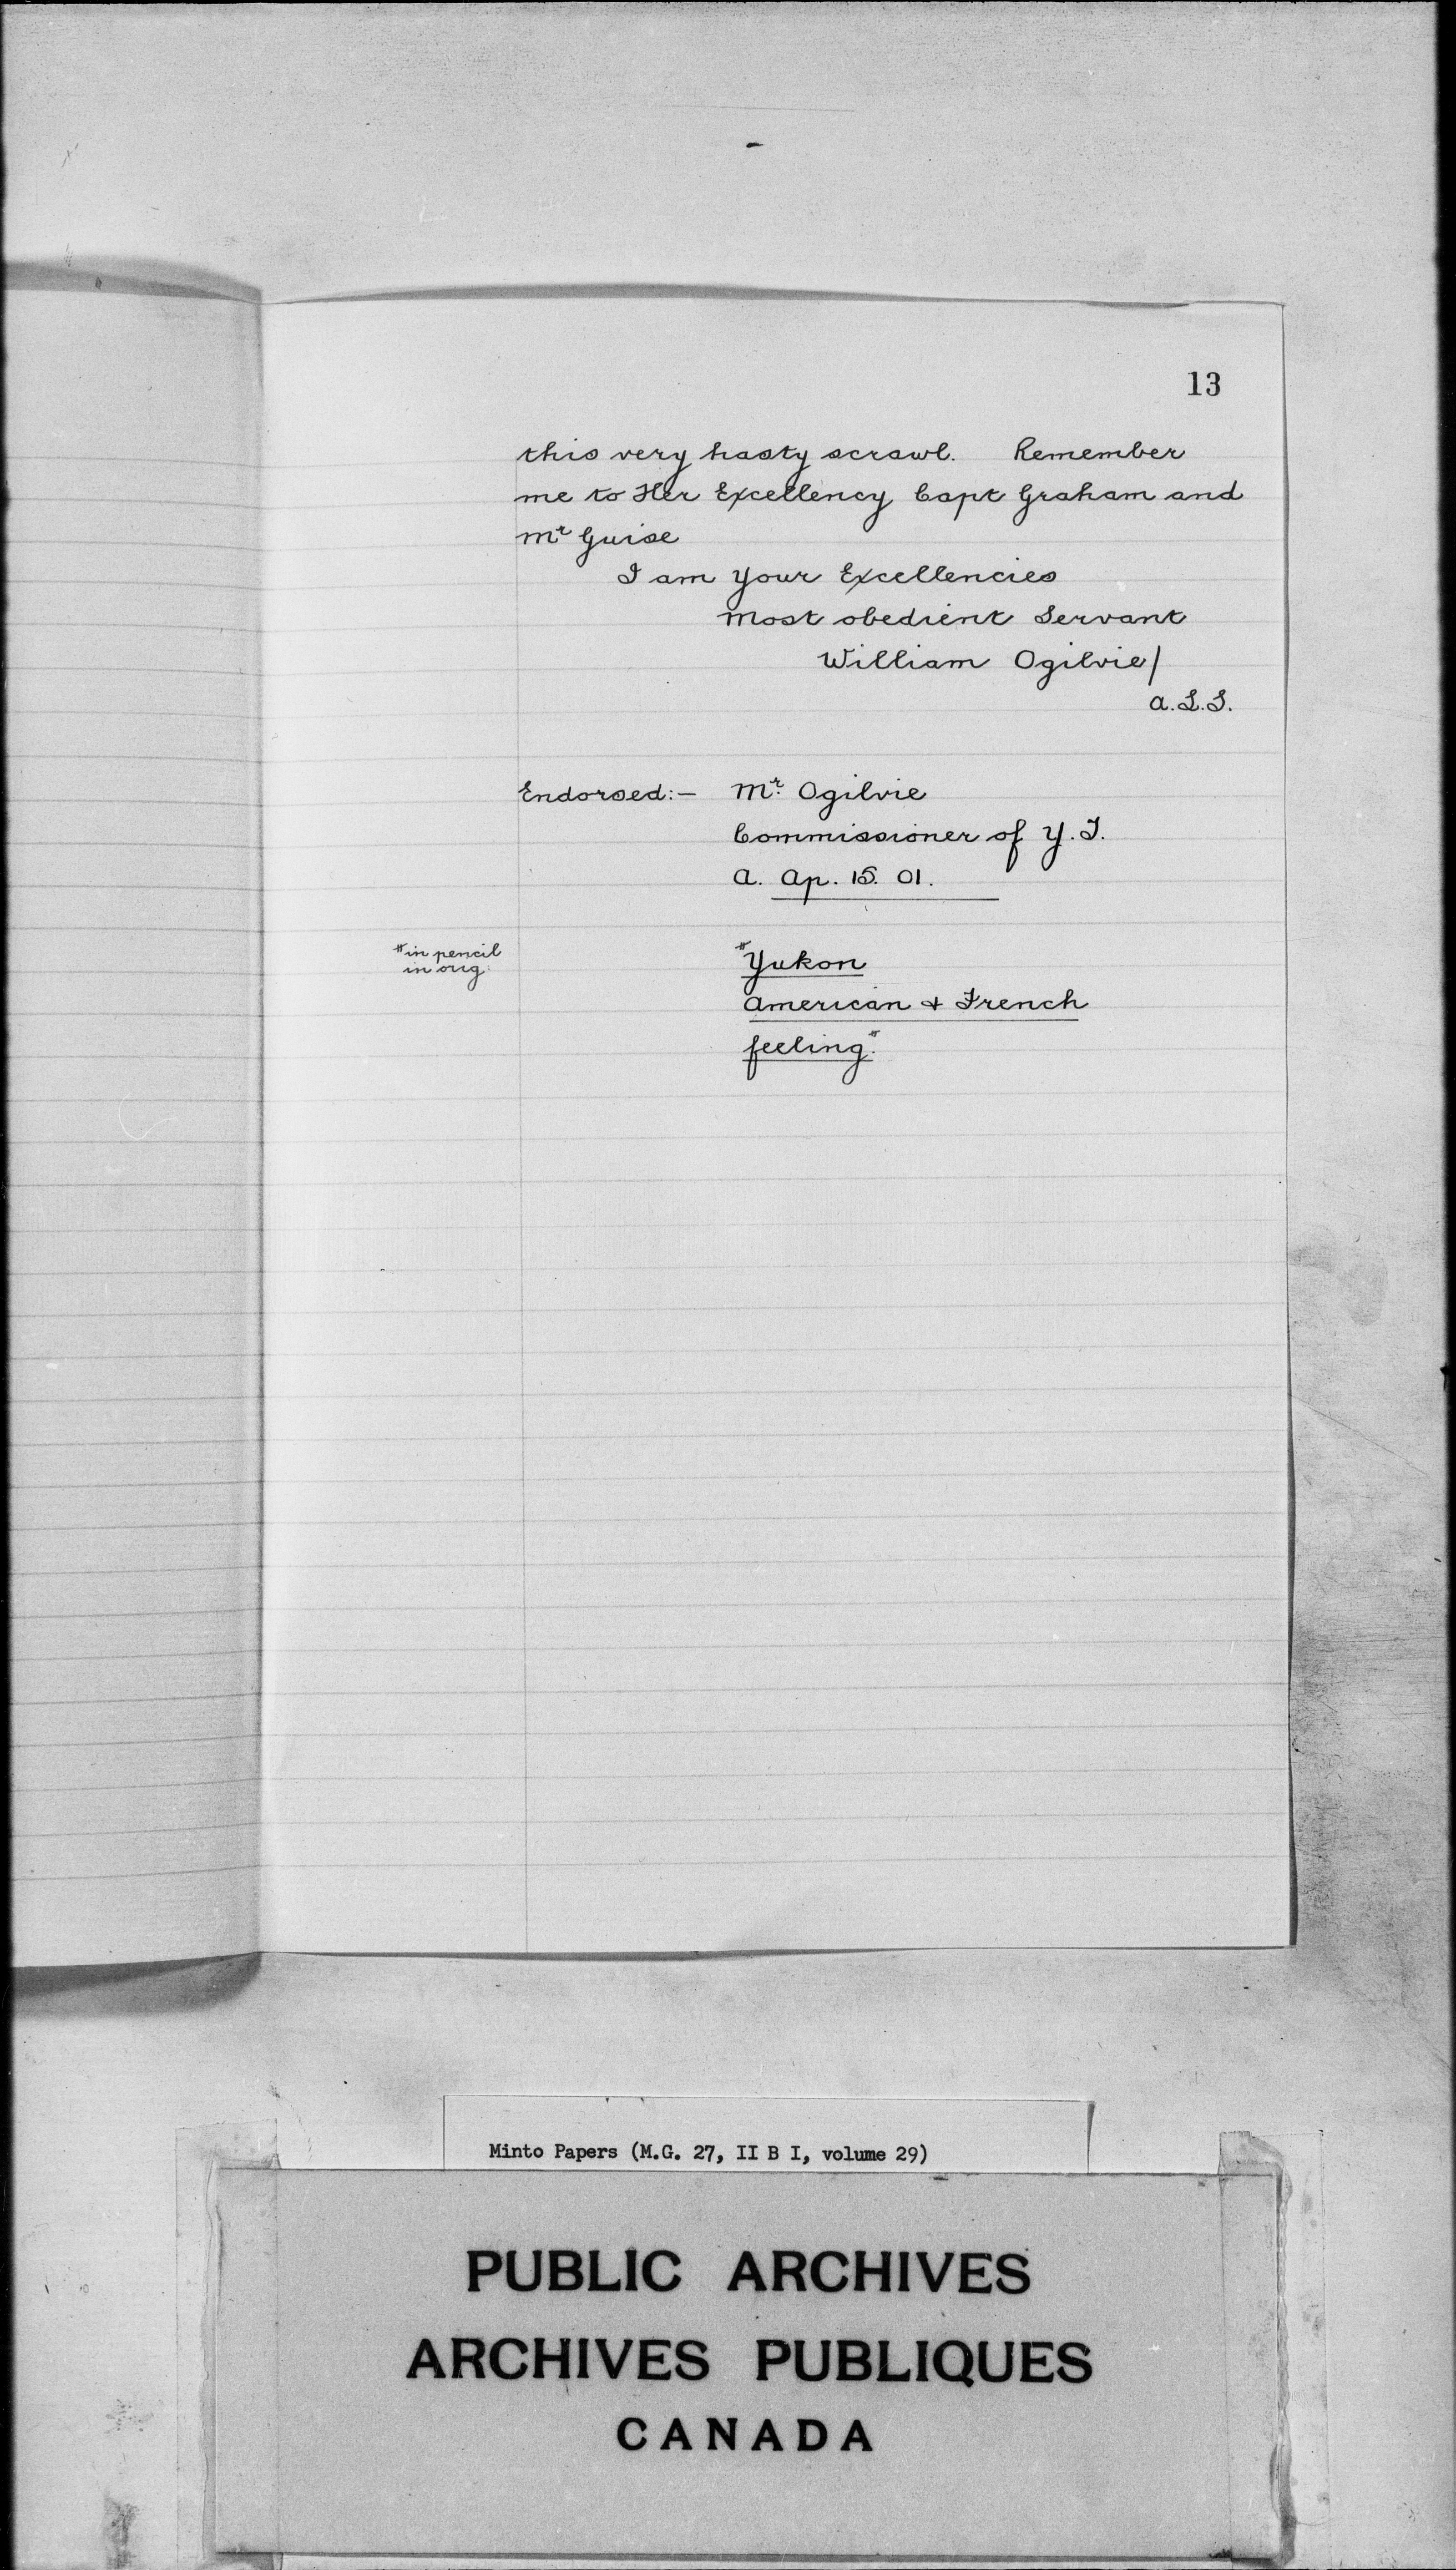 13
this very hasty scrawl. Remember
me to Her Excellency Capt Graham and
Mr Guise
I am your Excellencies
most obedient Servant
William Ogilvie/
A.L.S.
Endorsed:— Mr. Ogilvie
Commissioner of Y.T.
A. Ap. 15. 01.
#in pencil
in orig:
#Yukon
American & French
feeling.#
Minto Papers (M.G. 27, II B I, volume 29)
PUBLIC ARCHIVES
ARCHIVES PUBLIQUES
CANADA